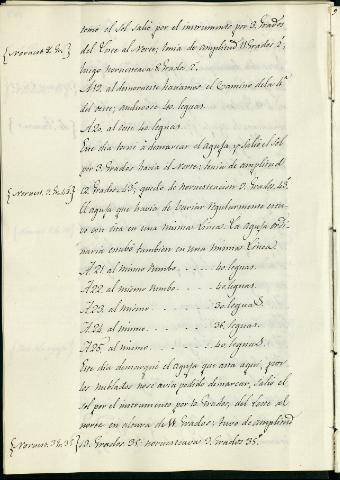 tomé el Sol salió por el instrumento por 3. Grados,
del Leste al Norte; tenía de amplitud 11 Grados 2'.
luego noruesteava 8. Grados. 2'.
A 19. al
del veste; anduvose 40. leguas.
A 20. al oeste 40. leguas.
Este día torné á demarcar el aguja, y salió el sol
por 3. Grados hacia el Norte; tenía de amplitud
12. Grados. 43'. quedo de noruesteacion 9. Grados. 43'.
El aguja que havia de variar regularmente estu-
vo con esta en una misma Linea. La aguja ordi-
naria estubo tambien en una misma Linea.
A 21. al mismo rumbo . . . . . 40 leguas.
A 22. al mismo rumbo . . . . . leguas.
A 23. al mismo . . . . . 30 leguas.
A 24. al mismo . . . . . 36. leguas.
A 25. al mismo . . . . . 40 leguas.
Este dia demarqué el aguja que asta aqui, por
los nublados no se avia podido demarcar, salió el
sol por el instrumento por 10 Grados, del Leste al
norte en altura de Grados; tuvo de amplitud
13. Grados 35'. noruesteava 3. Grados 35'.